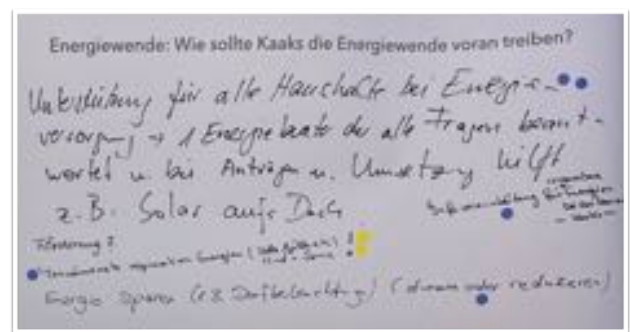 Energiewende: Wie sollte Kaaks die Energiewende voran treiben?
Unterstützung für alle Haushalte bei Energie-
versorgung → 1 Energieberater der alle Fragen beant-
wortet u. bei Anträgen u. Umsetzung hilft
z.B. Solar aufs Dach
Förderung?
Energie Sparen (z.B. Dorfbeleuchtung) (dimmen oder reduzieren)